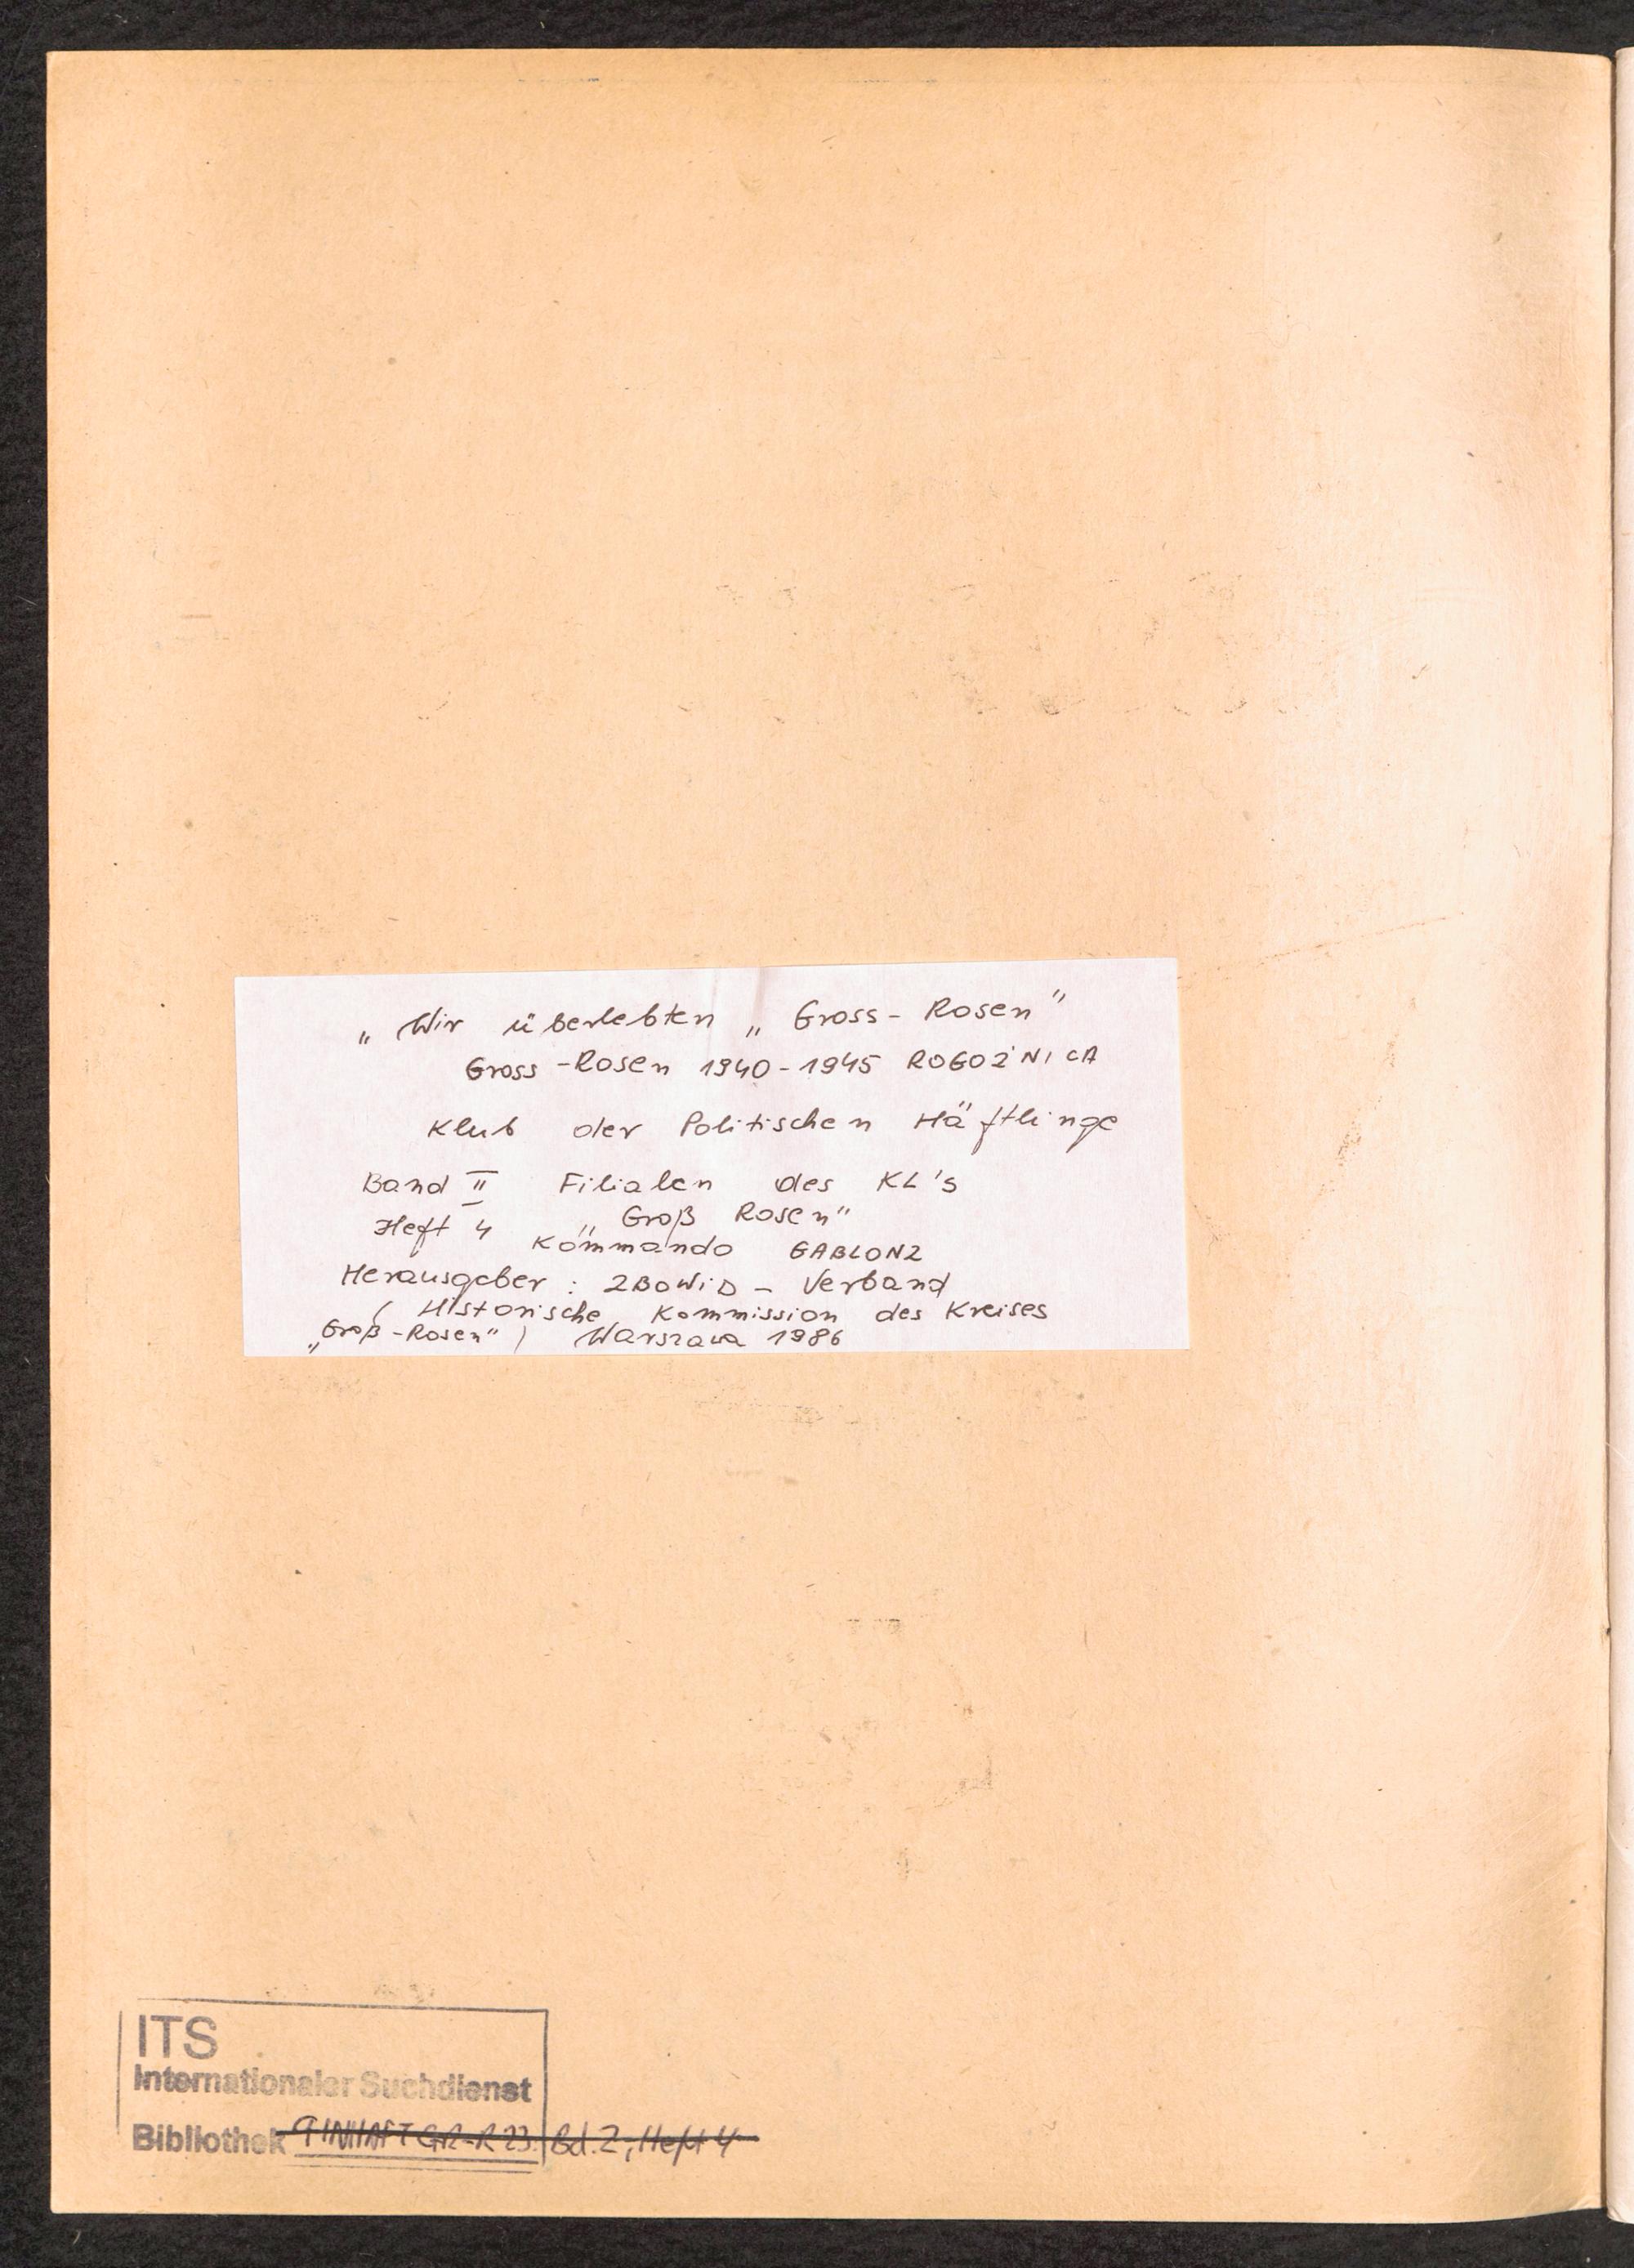 „ Wir überlebten „ Gross - Rosen "
Gross - Rosen 1940 - 1945 ROGOŹNICA
Klub der Politischen Häftlinge
Band II Filialen des KL's
Heft 4 „ Groß Rosen "
Kommando GABLONZ
Herausgeber : ZBOWiD - Verband
( Historische Kommission des Kreises
„Groß - Rosen" ) Warszawa 1986
ITS
Internationaler Suchdienst
Bibliothek 9 INHAFT GR-R 23. Bd. 2, Heft 4